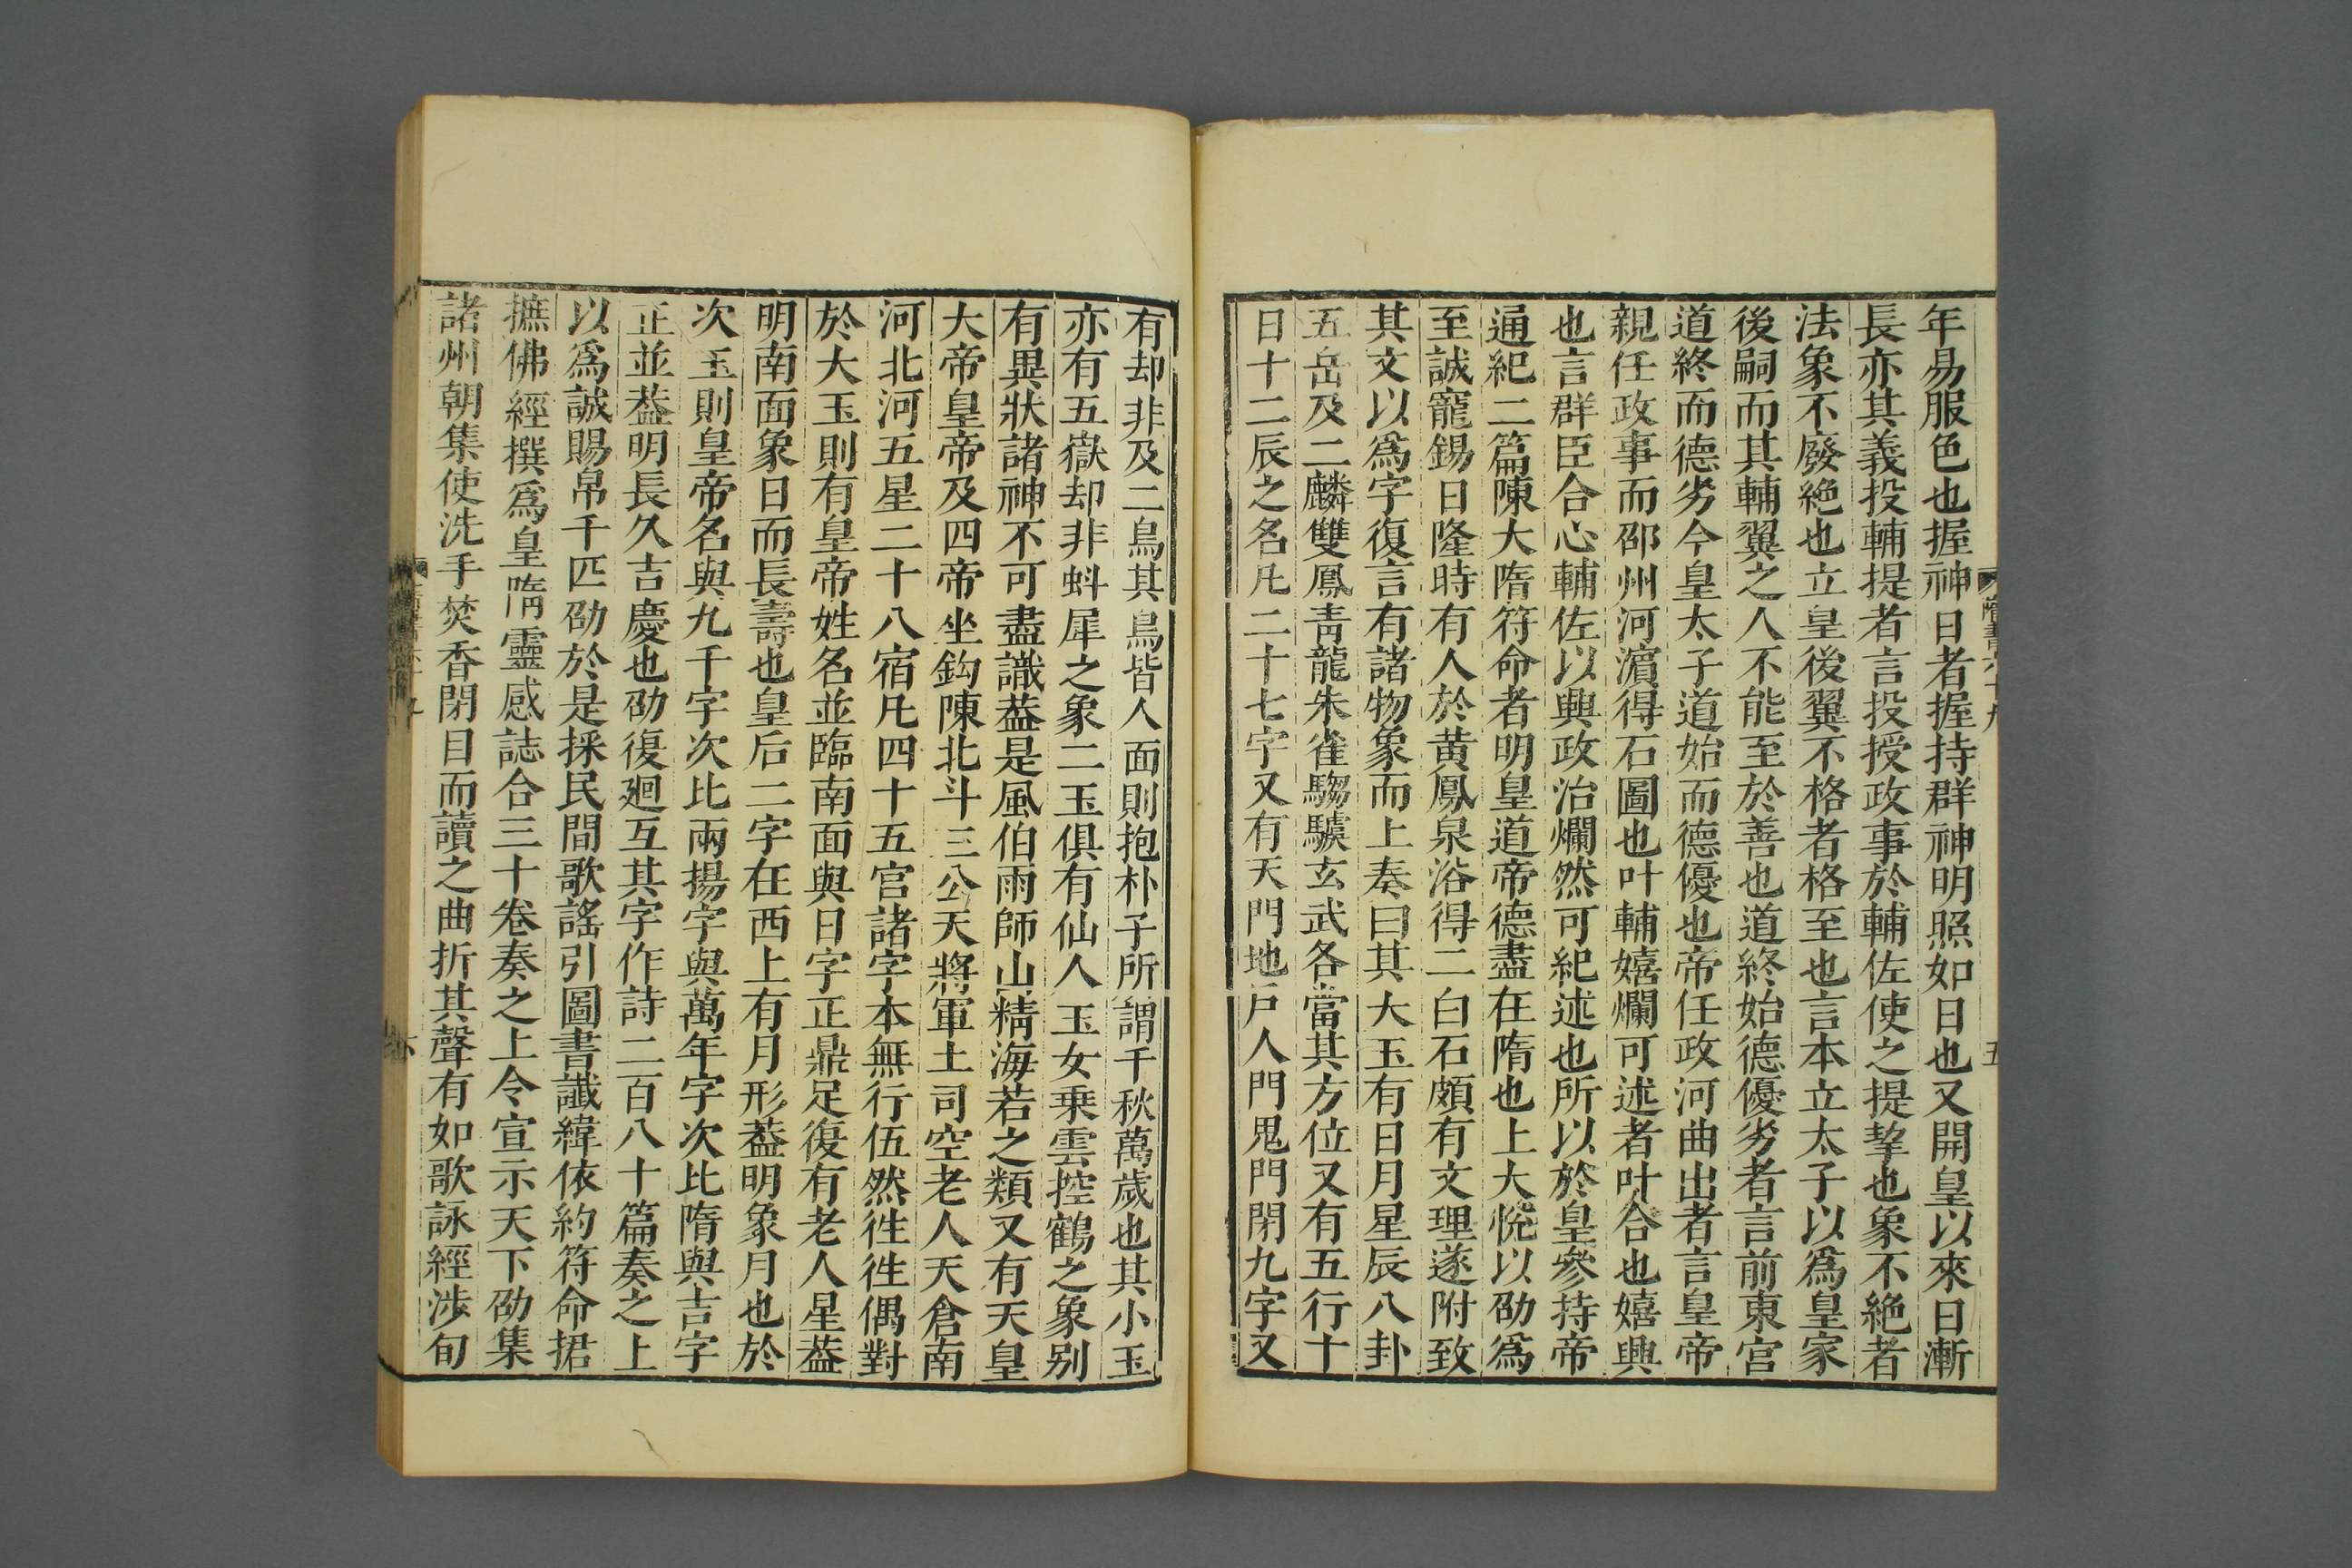 年易服色也握神日者握持群神明照如日也又開皇以來日漸
長亦其義投輔提者言投授政事於輔佐使之提挈也象不絶者
法象不廢絶也立皇後翼不格者格至也言本立太子以爲皇家
後嗣而其輔翼之人不能至於善也道終始德優劣者言前東宫
道終而德劣今皇太子道始而德優也帝任政河曲出者言皇帝
親任政事而邵州河濵得石圖也叶輔嬉爛可述者叶合也嬉興
也言群臣合心輔佐以興政治爛然可紀述也所以於皇參持帝
通紀二篇陳大隋符命者明皇道帝德盡在隋也上大悅以劭爲
至誠寵錫日隆時有人於黄鳳泉浴得二白石頗有文理遂附致
其文以爲字復言有諸物象而上奏曰其大玉有日月星辰八卦
五岳及二麟雙鳳靑龍朱雀騶驥玄武各當其方位又有五行十
日十二辰之名凡二十七字又有天門地戶人門鬼門閉九字又
隋書六十九
五
有却非及二鳥其鳥皆人面則抱朴子所謂千秋萬歲也其小玉
亦有五嶽却非蚪犀之象二玉俱有仙人玉女乗雲控鶴之象别
有異狀諸神不可盡識葢是風伯雨師山精海若之類又有天皇
大帝皇帝及四帝坐鈎陳北斗三公天將軍土司空老人天倉南
河北河五星二十八宿凡四十五官諸字本無行伍然徃徃偶對
於大玉則有皇帝姓名並臨南面與日字正鼎足復有老人星葢
明南面象日而長壽也皇后二字在西上有月形葢明象月也於
次玉則皇帝名與九千字次比兩揚字與萬年字次比隋與吉字
正並葢明長久吉慶也劭復廻互其字作詩二百八十篇奏之上
以爲誠賜帛千匹劭於是採民間歌謠引圖書讖緯依約符命捃
摭佛經撰爲皇隋靈感誌合三十卷奏之上令宣示天下劭集
諸州朝集使洗手焚香閉目而讀之曲折其聲有如歌詠經涉旬